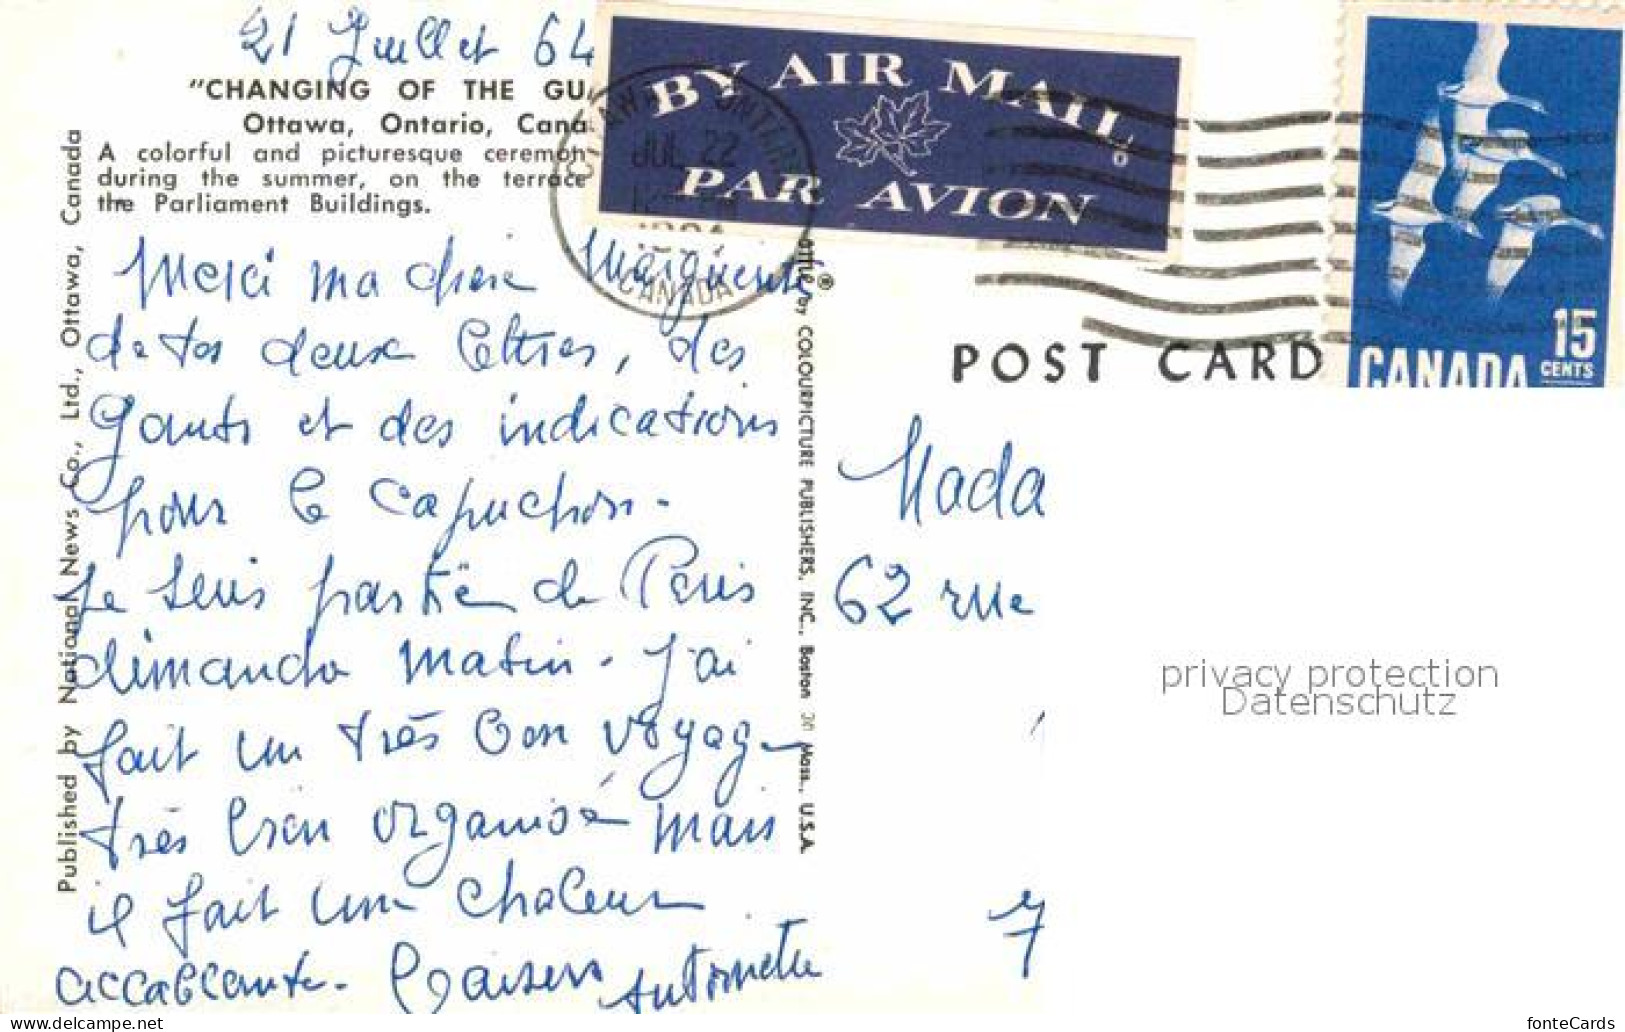 21 Juillet 64
"CHANGING OF THE GU
Ottawa, Ontario, Cana
A colorful and picturesque ceremon
during the summer, on the terrace
the Parliament Buildings.
Published by National News Co., Ltd., Ottawa, Canada
Merci ma chère Marguerite
de tes deux lettres, des
gants et des indications
pour le capuchon.
Je suis partie de Paris
dimanche matin. J'ai
fait un très bon voyage
très bien organisé mais
il fait une chaleur
accablante. Baisers Antoinette
by COLOURPICTURE PUBLISHERS, INC., Boston 30 Mass., U.S.A.
®
BY AIR MAIL
PAR AVION
ONTARIO
JUL 22
CANADA
15
CENTS
CANADA
POST CARD
Mada
62 rue
7
privacy protection
Datenschutz
www.delcampe.net
fonteCards